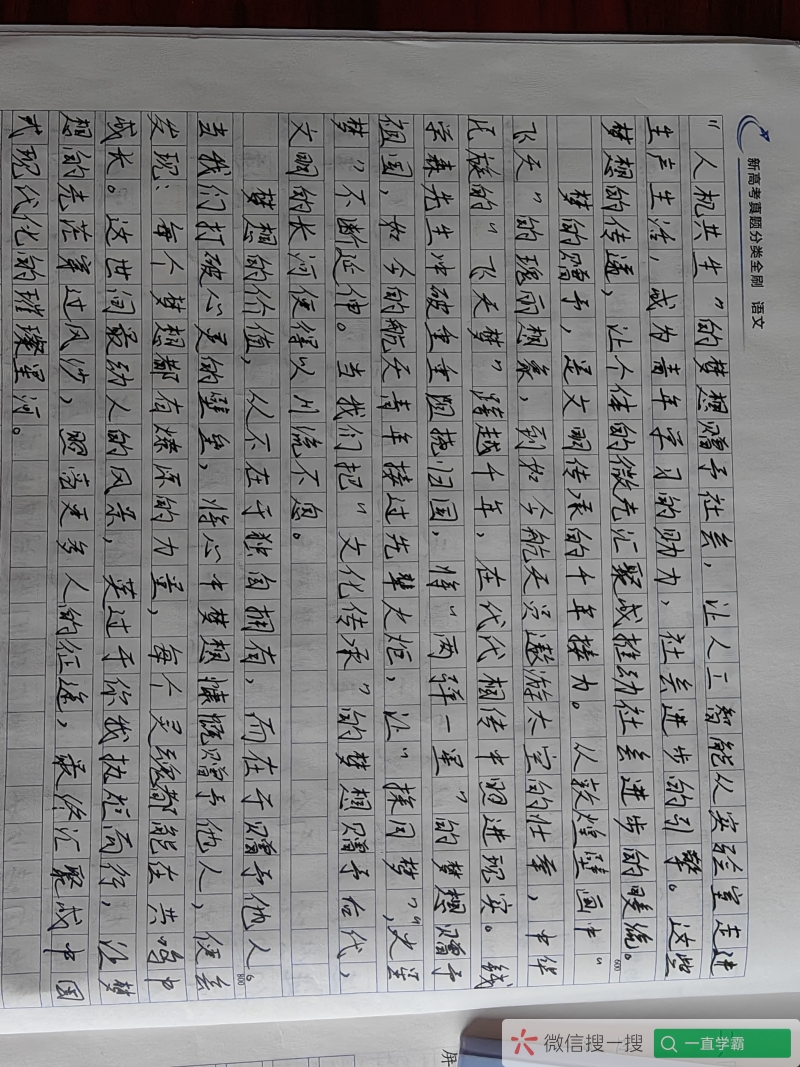 新高考真题分类全刷 语文
“人机共生”的梦想赠予社会，让人工智能从实验室走进
生产生活，成为青年学习的助力，社会进步的引擎。这些
梦想的传递，让个体的微光汇聚成推动社会进步的暖流。
600
梦的赠予，是文明传承的千年接力。从敦煌壁画中“
飞天”的瑰丽想象，到如今航天员遨游太空的壮举，中华
民族的“飞天梦”跨越千年，在代代相传中照进现实。钱
学森先生冲破重重阻挠归国，将“两弹一星”的梦想赠予
祖国，如今的航天青年接过先辈火炬，让“探月梦”，“火星
梦”不断延伸。当我们把“文化传承”的梦想赠予后代，
文明的长河便得以川流不息。
梦想的价值，从不在于独自拥有，而在于赠予他人。
800
当我们打破心灵的壁垒，将心中梦想慷慨赠予他人，便会
发现：每个梦想都有燎原的力量，每个灵魂都能在共鸣中
成长。这世间最动人的风景，莫过于你我执炬而行，让梦
想的光茫穿过风沙，照亮更多人的征途，最终汇聚成中国
式现代化的璀璨星河。
微信搜一搜
一直学霸